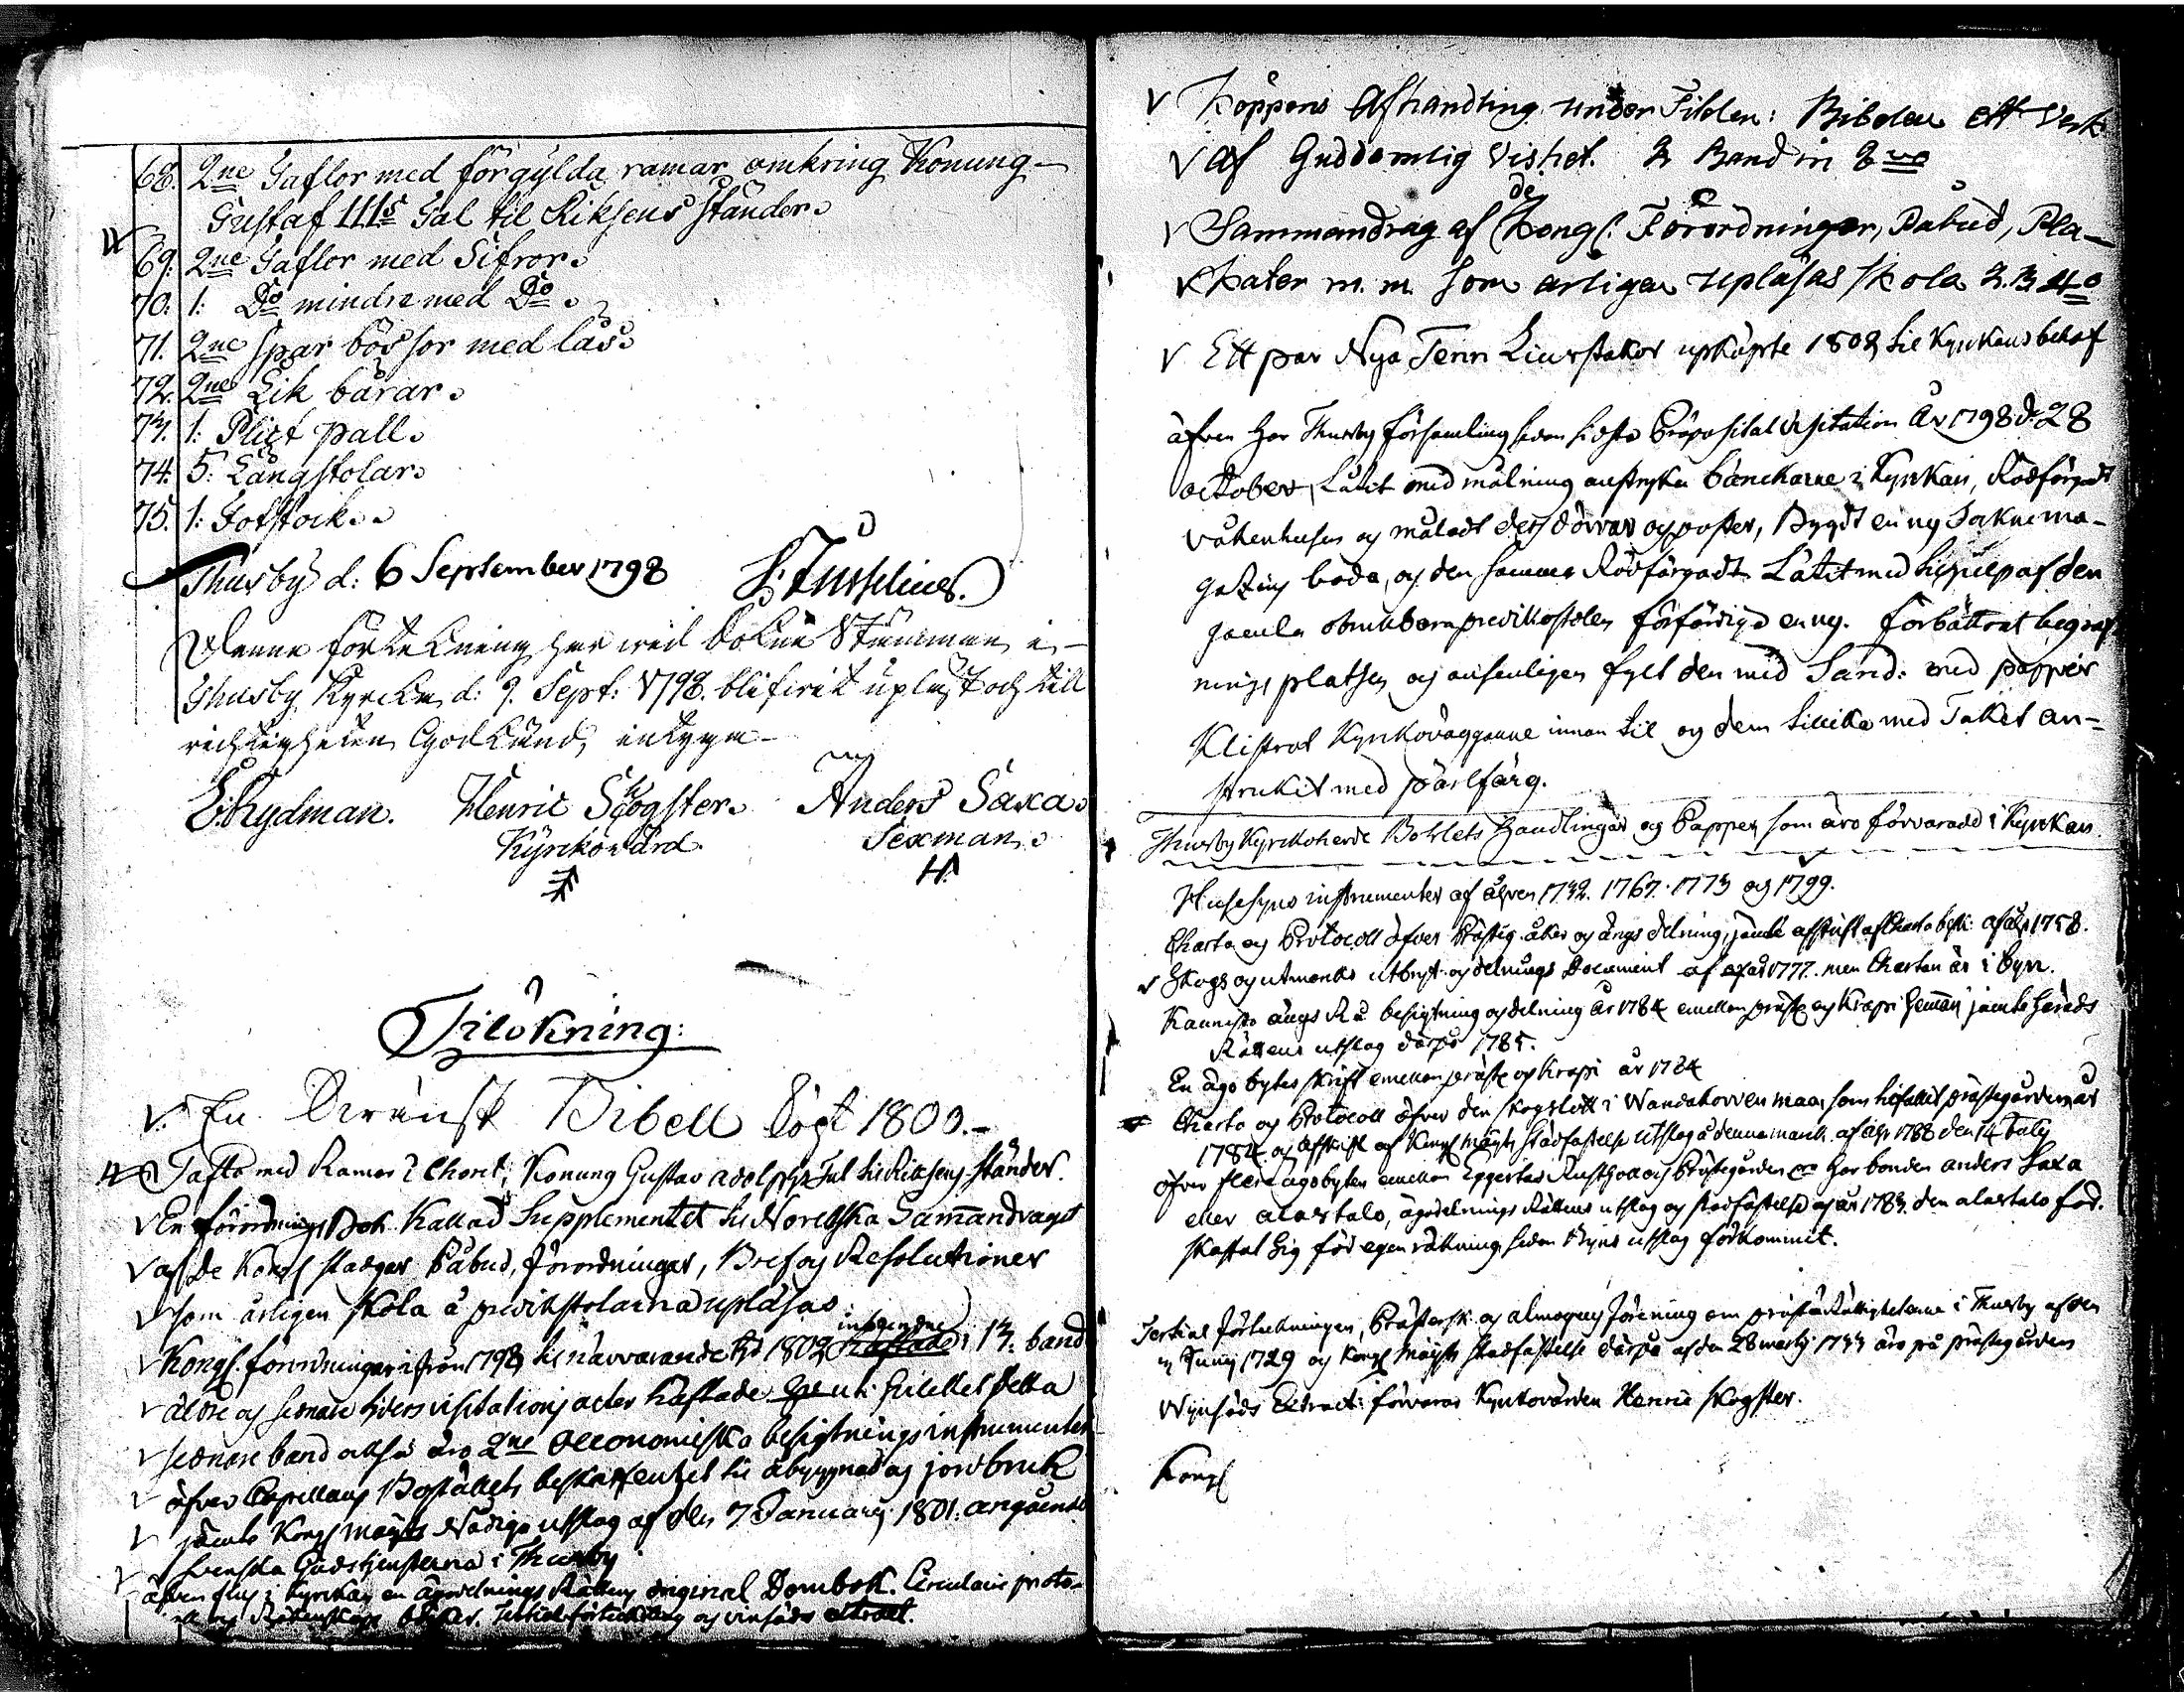 68. 2ne Taflor med förgylda ramar omkring Konung
Gustaf IIIs Tal til Riksens Ständer.
69. 2ne Taflor med Sifror.
70. 1: Do mindre med Do.
71. 2ne spar bössor med lås.
72. 2ne Lik bårar.
73. 1: Plict pall.
74. 5: Långstolar.
75. 1: Fotstock.
Thusby d: 6 September 1798
Denna förtekning har wid Sockne Stämman i
Thusby Kyrcka d: 9. Sept: 1798. blifwit uplast och till
richtigheten Godkänd, intyga
E. Rydman. Henric Skogster. Anders Saxa.
Kyrckowärd. Sexman.
Tilökning:
En Swensk Bibell Kögt 1800.
Tafla med Ramar Konung Gustav Adolphs Tal til Riksens Ständer.
En förordnings Bok Kallad Supplementet til Norellska Samandraget
af De Kongl stadgar Påbud, förordningar, Bref og Resolutioner
som årligen skola å predikstolarna upläsas
inbundne
Kongl. förordningar ifrån 1798 til närvarande tid 1802 häftade i 13. band
äldre og senare tiders visitations acter häftade uti hvilket detta
senare band äro 2ne Oeconomiska besigtnings instrumenter
öfver Capellans Boställets beskaffenhet til åbyggnad og jordbruk
jämte Kongl Mayts Nådiga utslag af den 7 January 1801. angående
Svenska Gudstjensterna i Thusby
äfven fins i Kyrkan en ägodelnings Rättens original Dombok. Circulair proto-
Räkenskaps böcker. Tertial förtekning og vinsäds extract.
Köppens Afhandling under Titelen: Bibelen ett Verk
af Guddomlig Vishet. 2 Band in 8vo
de
Sammandrag af Kongl. Förordningar, Påbud, Pla-
kater m. m. som årligen upläsas skola 2. B 4to
Ett par Nya Tenn Liusstakar upköpte 1802 til Kyrkans behof
äfven har Thusby församling sedan sidsta Präposital visitation År 1798 d. 28
october, Låtit med målning anstryka bänckarne i Kyrkan, Rödfärgadt
våkenhuset og måladt dess dörrar og poster, Bygdt en ny Sockne ma-
gazins boda, og den samma Rödfärgadt. Låtit med hjelp af den
gamla obrukbara predikostolen förfärdiga en ny. förbättrat begraf-
nings platsen og ansenligen fylt den med Sand: med papper
Klistrat Kyrkoväggarne innan til og dem tillika med Taket an-
strukit med pärlfärg.
Thusby Kyrckoherde Bohlets Handlingar og Papper som äro förvarade i Kyrkan.
Husesyns instrumenter af åren 1732. 1767. 1773 og 1799.
Charta og Protocoll öfver Prästg. åker og ängs delning, jämte afskrift af Charta beskr. af år 1758.
Skogs og utmarks utbryt. og delnings Document af år 1777. men Chartan är i byn.
Kannisto ängs Rå besigtning og delning år 1784 emellan präst og Krapi hemman jämte härads
Rättens utslag därpå 1785.
En ägo bytes skrift emellan präst og Krapi år 1784
Charta og Protocoll öfver den skogslott i Wandahorven maa, som tilfallit prästegården år
1784. og Afskrift af Kongl Mayts stadfästelse utslag å denna mark af år 1788 den 14
öfver flera ägobyten emellan Eggertas Rusthåll og Prästegården har bonden anders Saxa
eller alastalo, ägodelnings Rättens utslag og stadfästelse af år 1783. den alastalo
skaffat sig för egen räkning sedan Byns utslag förkommit.
Tertial förtekningen, Prästersk. og almogens förening om prästerättigheterne i Thusby af den
Juny 1729 og Kongl Mayts stadfästelse därpå af den 28 marti 1733 äro på prästegården
Winsäds Extract förvarar Kyrkovärden Henric Skogster.
Kongl